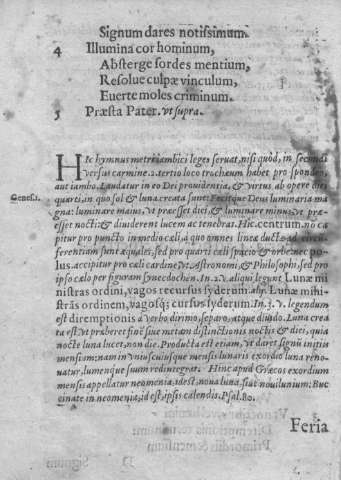 Signum dares notissimum.
4 Illumina cor hominum,
Absterge sordes mentium,
Resolue culpæ vinculum,
Euerte moles criminum.
5 Præsta Pater. vt supra.
HIc hymnus metri iambici leges seruat, nisi quòd, in secundi
versus carmine. 2. tertio loco trochæum habet pro spondeo,
aut iambo. Laudatur in eo Dei prouidentia, & virtus ab opere diei
Genes. 1.
quarti, in quo sol & luna creata sunt: Fecitque Deus luminaria ma
gna: luminare maius, vt præesset diei, & luminare minus, vt præ-
esset nocti: & diuiderent lucem ac tenebras. Hic. centrum. no ca
pitur pro puncto in medio cæli, à quo omnes lineæ ductæ ad circun-
ferentiam sunt æquales, sed pro quarti cæli spacio & orbe: nec po
lus. accipitur pro cæli cardine vt Astronomi, & Philosophi, sed pro
ipso cælo per figuram synecdochen. In. 2. v. aliqui legunt Lunæ mi
nistras ordini, vagos recursus syderum. alij. Lunæ mini-
stras ordinem, vagosq; cursus syderum. In. 3. v. legendum
est diremptionis à verbo dirimo, separo, atque diuido. Luna crea
ta est vt præberet fine siue metam distinctionis noctis & diei, quia
nocte luna lucet, non die. Producta est etiam, vt daret signū initiis
mensium: nam in vniuscuiusque mensis lunaris exordio luna reno-
uatur, lumenque suum redintegrat. Hinc apud Græcos exordium
mensis appellatur neomenia, idest, noua luna, siue nouilunium: Buc
cinate in neomenia, id est, ipsis calendis. Psal. 80.
Feria